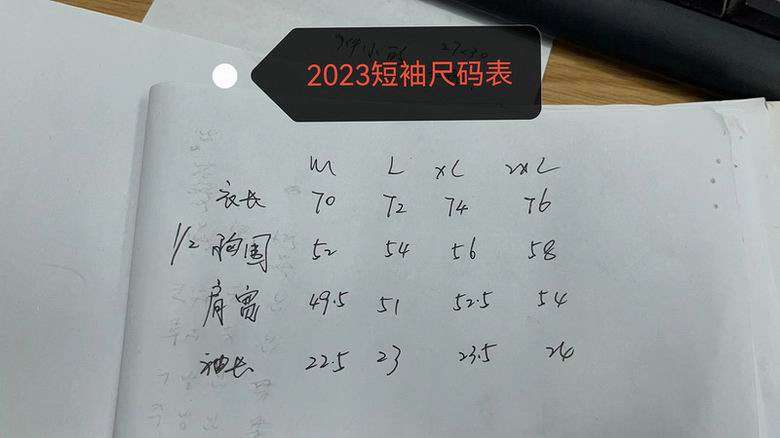 2023短袖尺码表
M L XL 2XL
衣长 70 72 74 76
1/2胸围 52 54 56 58
肩宽 49.5 51 52.5 54
袖长 22.5 23 23.5 24